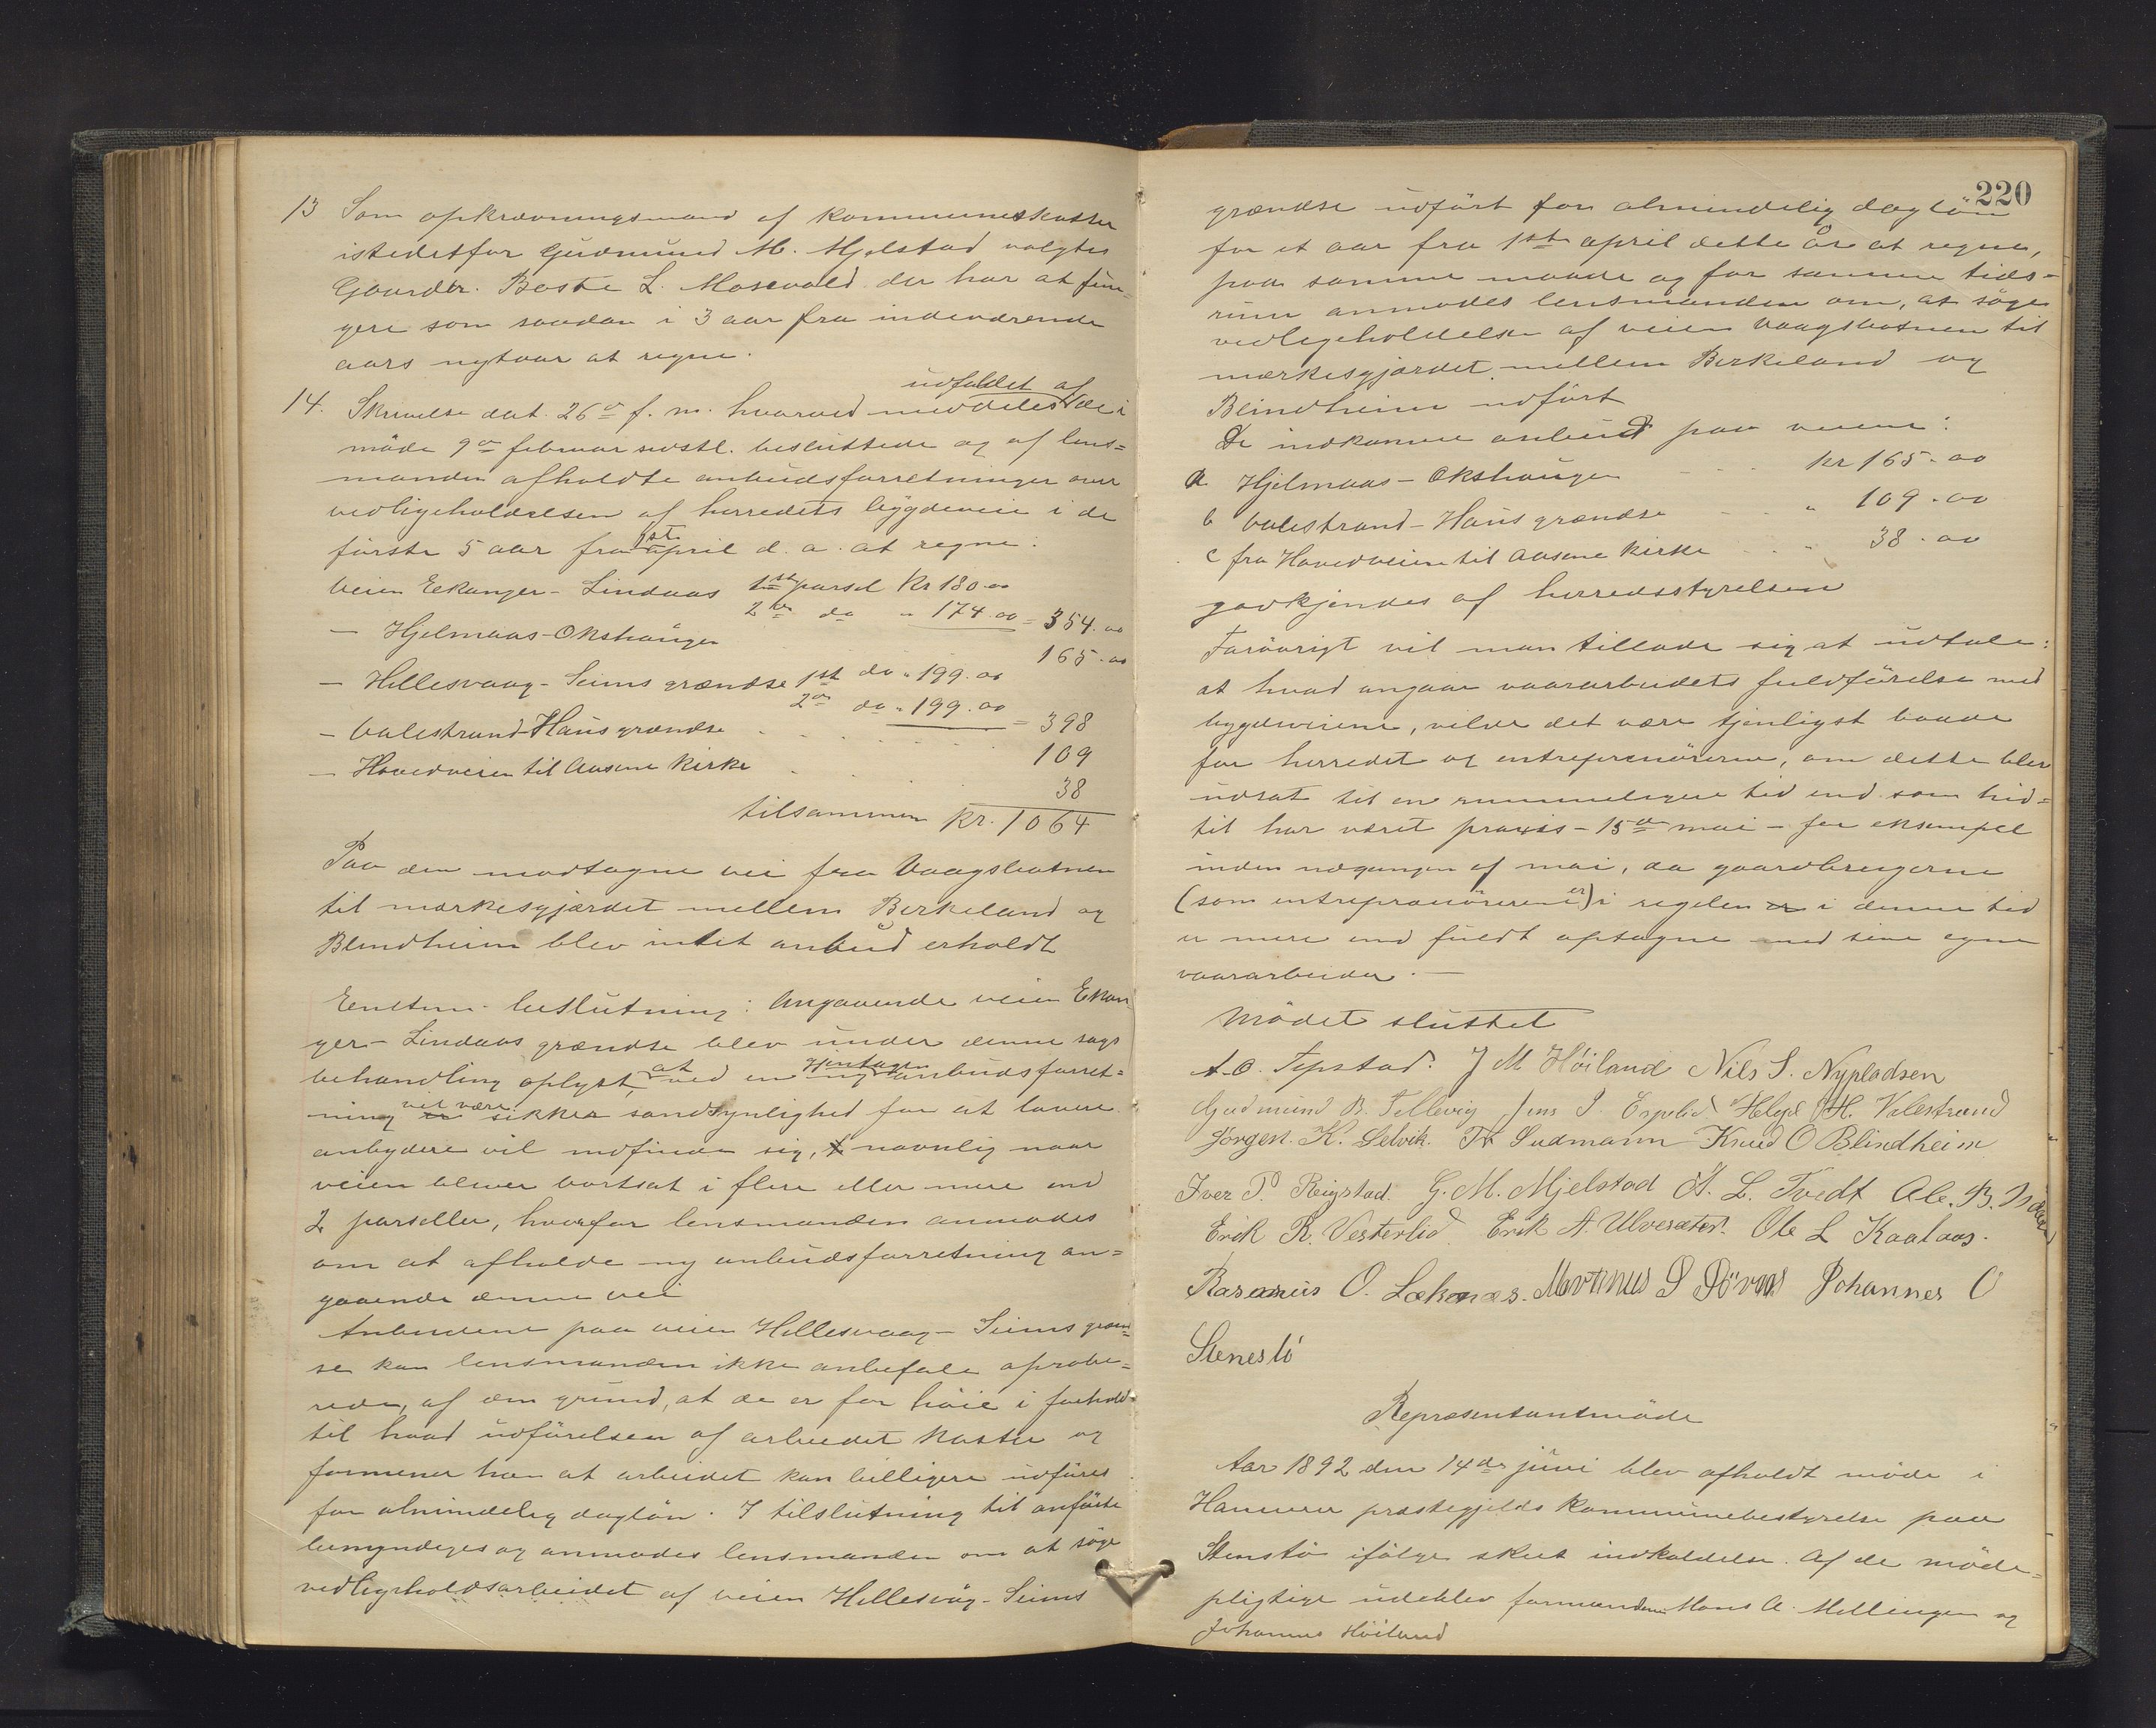 13 Som opkrævningsmand af kommuneskatter
istedetfor Gudmund M. Mjelstad valgtes
Gaardbr. Baste L. Mosevold der har at fun-
gere som saadan i 3 aar fra indeværende
aars nytaar at regne.
14. Skrivelse dat. 26de f. m. hvorved meddeles udfaldet af de i
møde 9de februar sidstl. besluttede og af lens=
manden afholdte anbudsforretninger over
vedligeholdelsen af herredets bygdeveie i de
første 5 aar fra 1ste april d. a. at regne:
Veien Eekanger - Lindaas 1ste parsel Kr 180.00
2den do " 174.00 = 354.00
— Hjelmaas - Okshaugen 165.00
— Hillesvaag - Seims grændse 1ste do " 199.00
2den do " 199.00 = 398
— Valestrand - Haus grændse 109
— Hovedveien til Aasene Kirke 38
tilsammen Kr. 1064
Paa den modtagne vei fra Vaagsbotnen
til markesgjærdet mellem Birkeland og
Blindheim blev intet anbud erholdt
Enstem. beslutning: Angaaende veien Ekan-
ger - Lindaas grændse blev under denne sags
behandling oplyst, at ved en ny gjentagen anbudsforret=
ning er vil være sikker sandsynlighed for at lavere
anbydere vil indfinde sig, navnlig naar
veien bliver bortsat i flere eller mere end
2 parseller, hvorfor lensmanden anmodes
om at afholde ny anbudsforretning an=
gaaende denne vei
Anbudene paa veien Hillesvaag - Seims græn=
se kan lensmanden ikke anbefale aprobe=
rede, af den grund, at de er for høie i forhold
til hvad udførelsen af arbeidet koster og
formener han at arbeidet kan billigere udføres
for almindelig dagløn. I tilslutning til anførte
bemyndiges og anmodes lensmanden om at søge
vedligeholdsarbeidet af veien Hillesvåg - Seims
220
grændse udført for almindelig dagløn
for et aar fra 1ste april dette år at regne,
paa samme maade og for samme tids-
rum anmodes lensmanden om, at søge
vedligeholdelse af veien Vaagsbotnen til
mærkesgjærdet mellem Birkeland og
Blindheim udført
De indkomne anbud paa veiene:
a Hjelmaas - Okshaugen kr 165.00
b Valestrand - Haus grændse " 109.00
c fra Hovedveien til Aasene Kirke " 38.00
godkjendes af herredsstyrelsen
Forøvrigt vil man tillade sig at udtale:
at hvad angaar vaararbeidets fuldførelse med
bygdeveiene, vilde det være tjenligst baade
for herredet og entreprenørerne, om dette blev
udsat til en rummeligere tid end som hid=
til har været praxis - 15de mai - for eksempel
inden udgangen af mai, da gaardbrugerne
(som entreprenørerne er) i regelen er i denne tid
er mere end fuldt optagne med sine egne
vaararbeider. —
Mødet sluttet
A. O. Tepstad. J M Høiland Nils S. Nypladsen
Gudmund B. Tellevig Jens I. Espelid Helge H. Valestrand
Jørgen. K. Selvik. Th Sudmann Knud O Blindheim
Iver P. Reigstad. G. M. Mjelstad A. L. Tvedt Ole. B. Isdal
Erik R. Vesterlid. Erik A. Ulvesæter. Ole L Kaalaas.
Rasmus O. Leknæs. Martinus S Røvaas Johannes O
Stenestö
Repræsentantmøde
Aar 1892 den 14de juni blev afholdt møde i
Hammer præstegjelds kommunebestyrelse paa
Stenstø ifølge skeet indkaldelse. Af de møde=
pligtige udeblev formanden Mons A. Mellingen og
Johannes Høiland